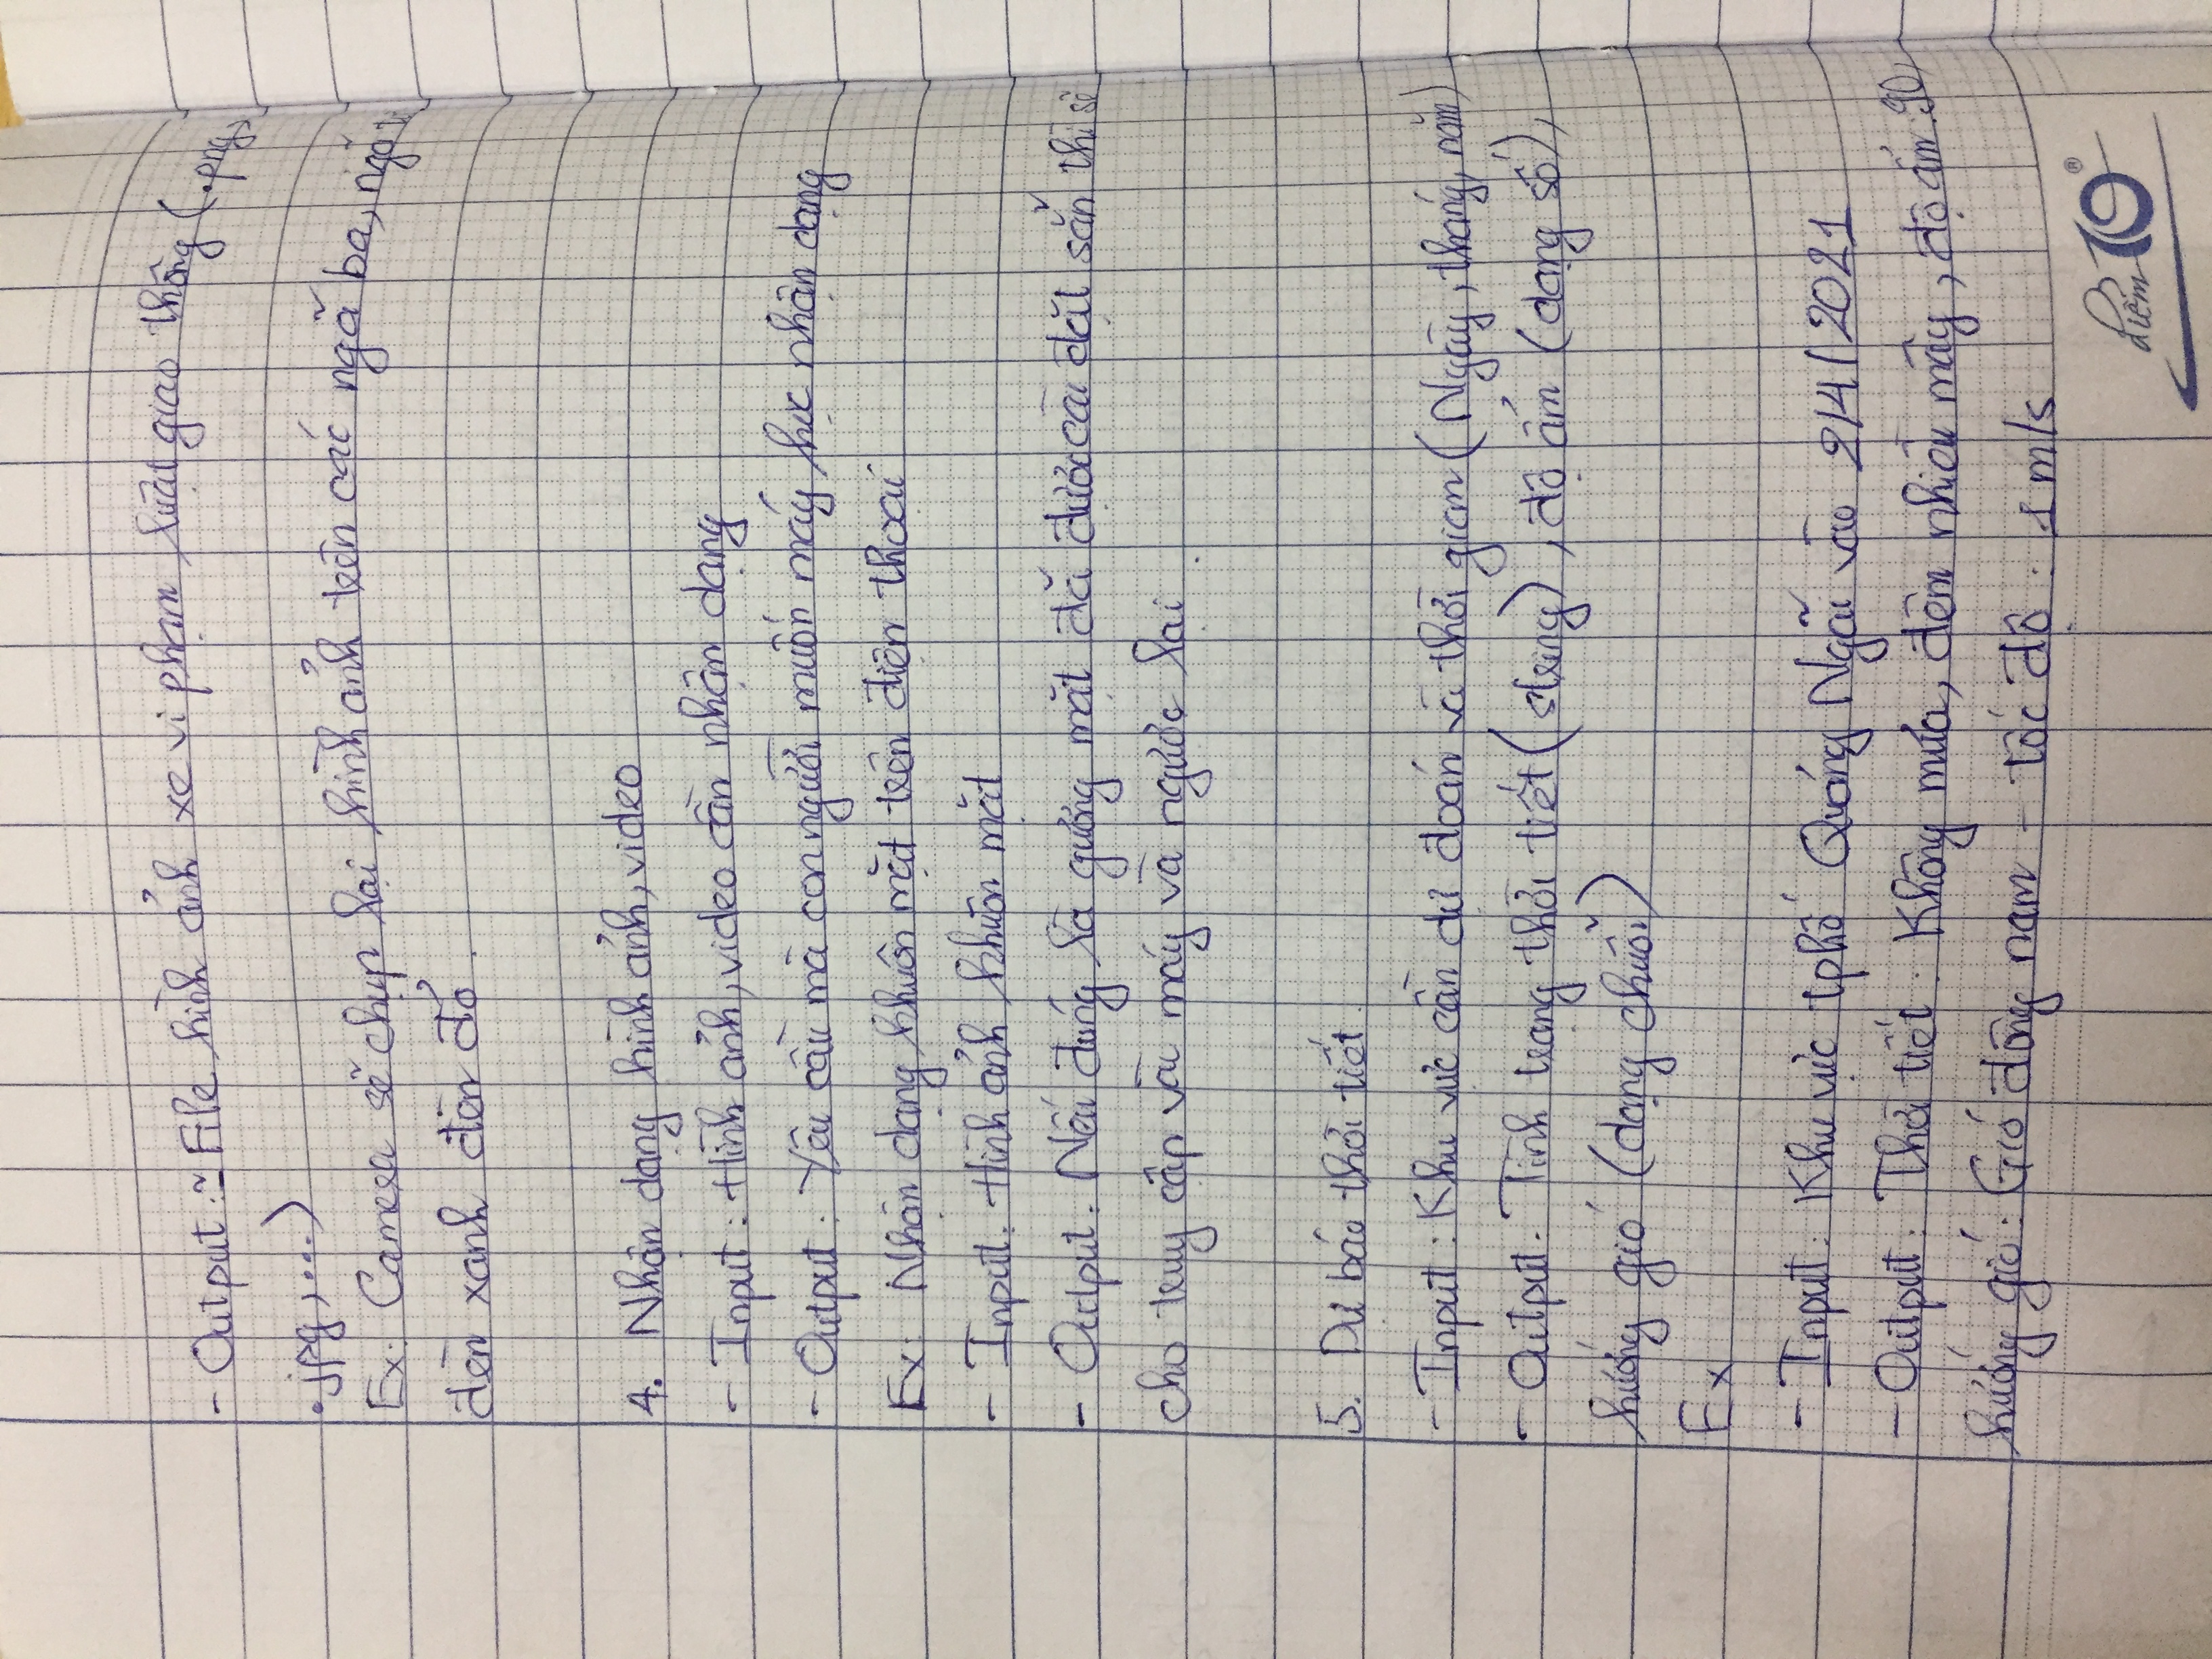 - Output: File hình ảnh xe vi phạm luật giao thông (.png,
.jpg,...)
Ex: Camera sẽ chụp lại hình ảnh trên các ngã ba, ngã
đèn xanh đèn đỏ.
4. Nhận dạng hình ảnh, video
- Input: Hình ảnh, video cần nhận dạng
- Output: Yêu cầu mà con người muốn máy học nhận dạng
Ex: Nhận dạng khuôn mặt trên điện thoại
- Input: Hình ảnh khuôn mặt
- Output: Nếu đúng là gương mặt đã được cài đặt sẵn thì sẽ
cho truy cập vào máy và ngược lại.
5. Dự báo thời tiết.
- Input: Khu vực cần dự đoán và thời gian (Ngày, tháng, năm)
- Output: Tình trạng thời tiết (string), độ ẩm (dạng số),
hướng gió (dạng chuỗi)
Ex
- Input: Khu vực tphố Quảng Ngãi vào 2/4/2021
- Output: Thời tiết: Không mưa, đêm nhiều mây, độ ẩm: 90,
hướng gió: Gió đông nam - tốc độ: 1 m/s
điểm 10